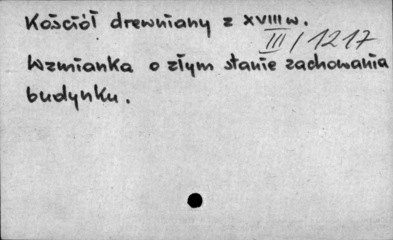 Kościół drewniany z XVIII w.
III/1217
Wzmianka o złym stanie zachowania
budynku.